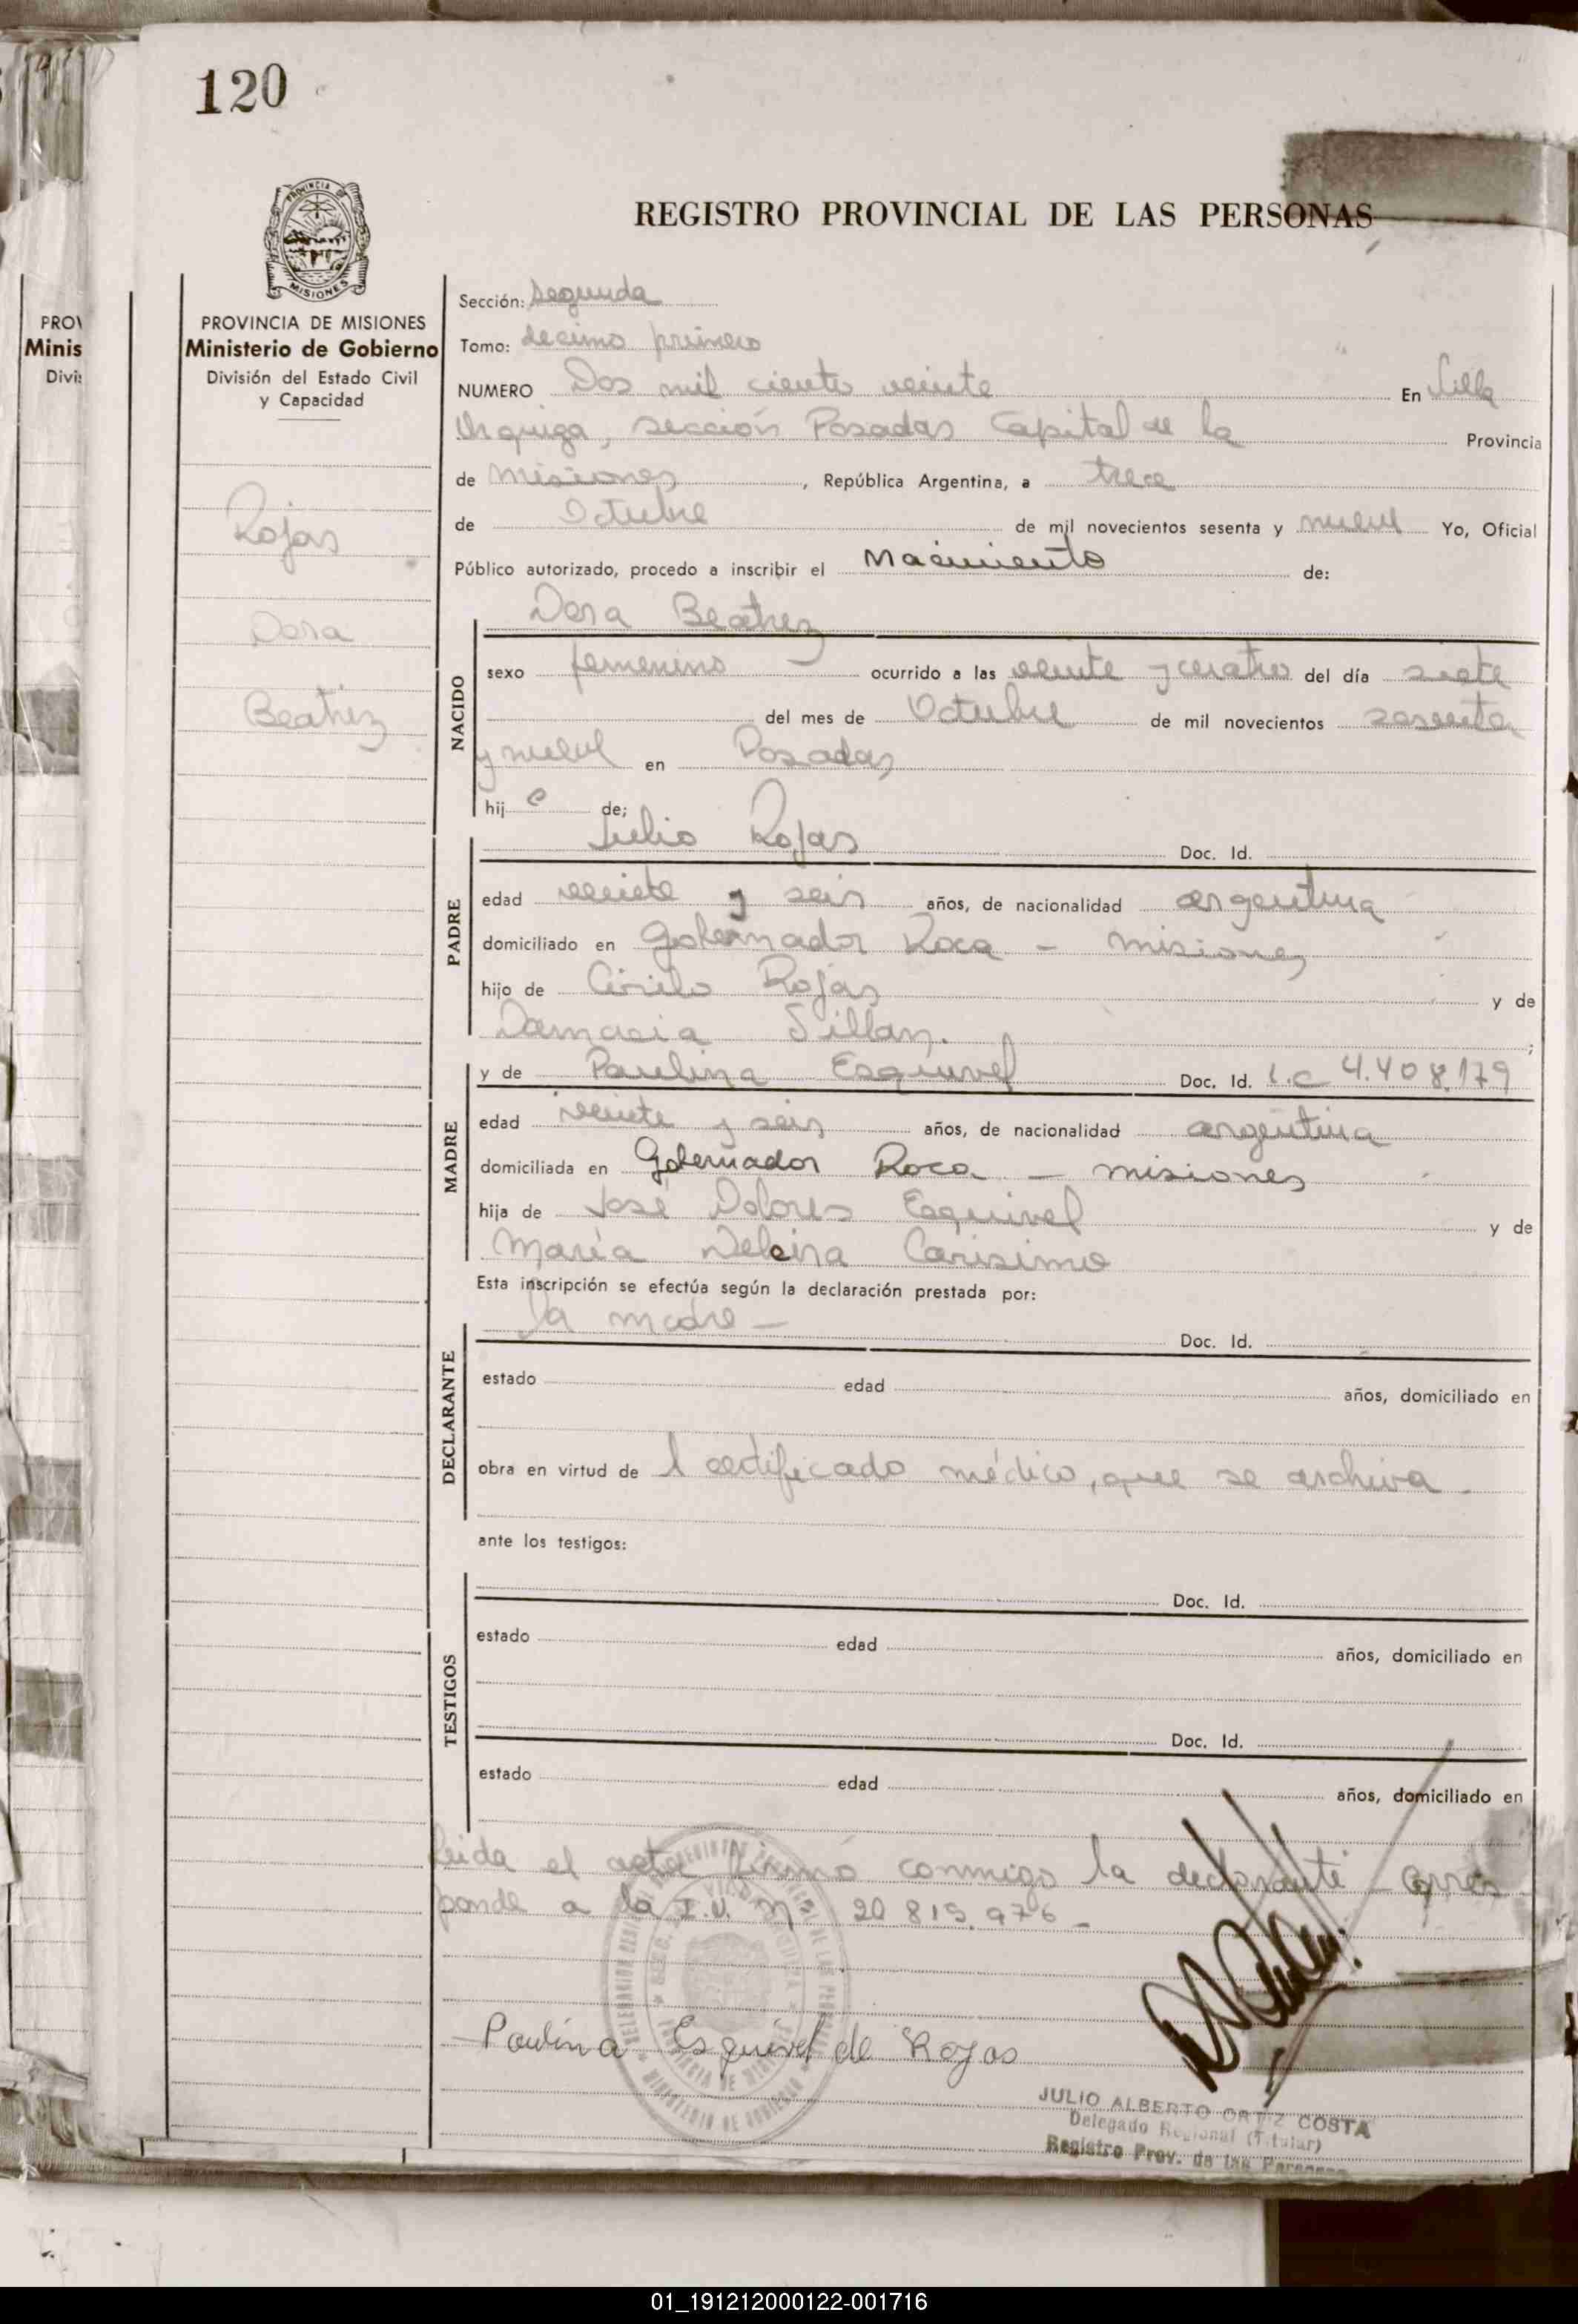 120
REGISTRO PROVINCIAL DE LAS PERSONAS
PROVINCIA DE MISIONES
Ministerio de Gobierno
División del Estado Civil
y Capacidad
Rojas
Dora
Beatriz
Sección: Segunda
Tomo: decimo primero
NUMERO Dos mil ciento veinte En Villa
Urquiza, sección Posadas Capital de la Provincia
de Misiones, República Argentina, a trece
de Octubre de mil novecientos sesenta y nueve Yo, Oficial
Público autorizado, procedo a inscribir el Nacimiento de:
Dora Beatriz
NACIDO
sexo femenino ocurrido a las veinte y cuatro del día siete
del mes de Octubre de mil novecientos sesenta
y nueve en Posadas
hij a de;
Julio Rojas Doc. Id.
PADRE
edad veinte y seis años, de nacionalidad argentina
domiciliado en Gobernador Roca - Misiones
hijo de Cirilo Rojas y de
Damacia Sillan.
y de Paulina Esquivel Doc. Id. L.C 4.408.179
MADRE
edad veinte y seis años, de nacionalidad argentina
domiciliada en Gobernador Roca - Misiones
hija de José Dolores Esquivel y de
María Carisimo
Esta inscripción se efectúa según la declaración prestada por:
la madre - Doc. Id.
DECLARANTE
estado edad años, domiciliado en
obra en virtud de l certificado médico, que se archiva -
ante los testigos:
Doc. Id.
TESTIGOS
estado edad años, domiciliado en
Doc. Id.
estado edad años, domiciliado en
Leida el acta firmó conmigo la declarante - Corres
ponde a la I.U. Nº 20 819.976 -
Paulina Esquivel de Rojas
JULIO ALBERTO ORTIZ COSTA
Delegado Regional (Titular)
Registro Prov. de las Personas
PROV
Minis
Divi
01_191212000122-001716